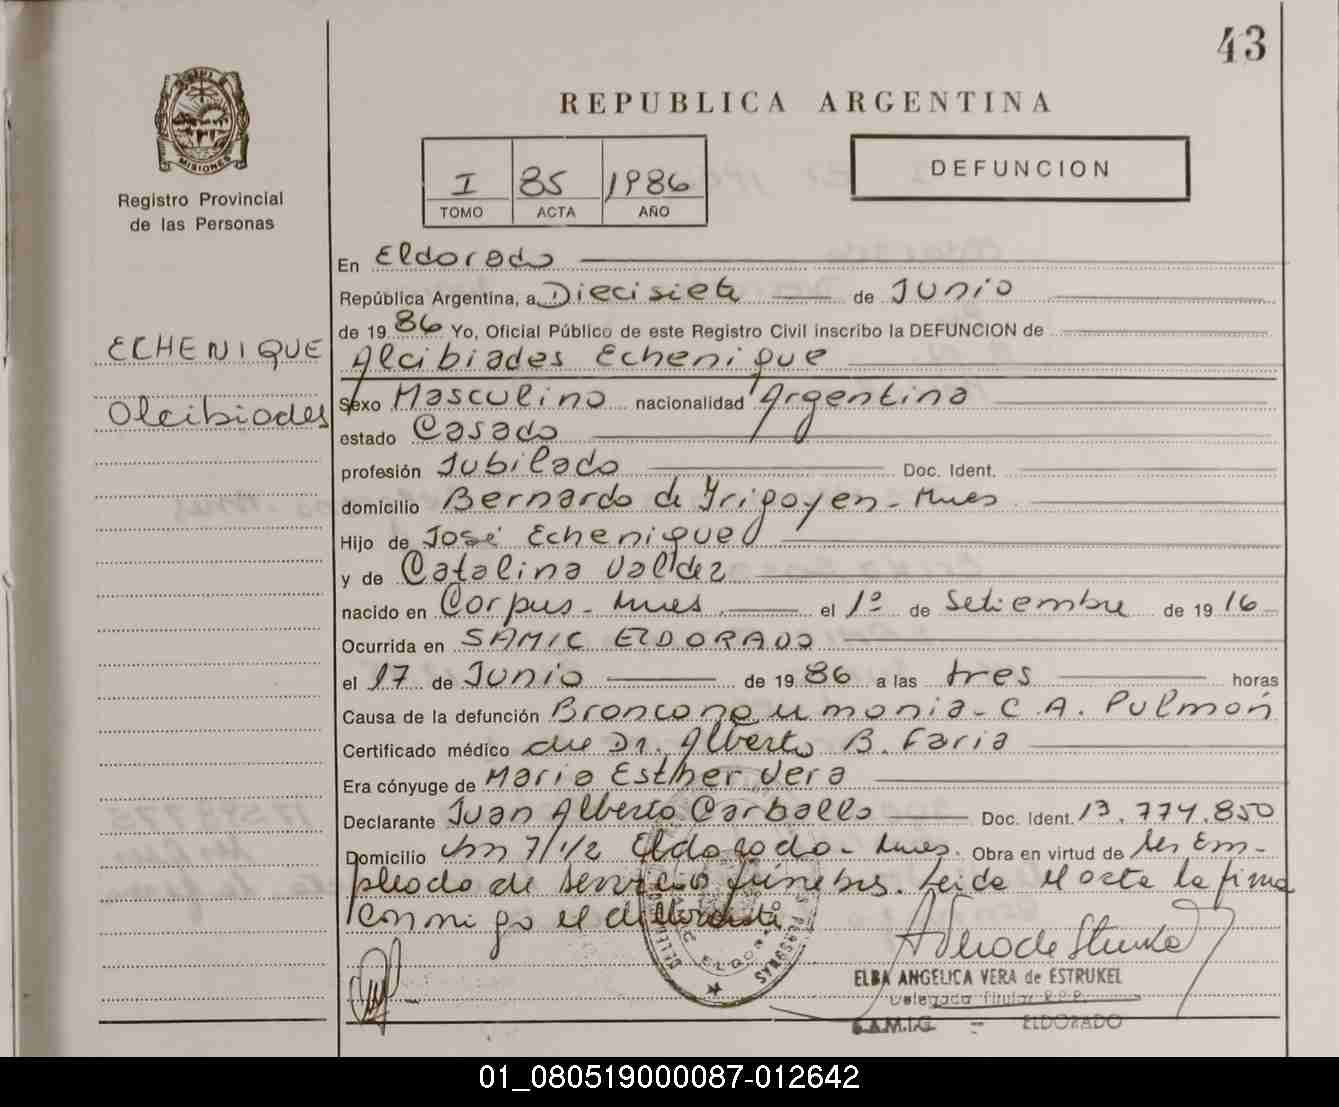 43
REPUBLICA ARGENTINA
MISIONES
Registro Provincial
de las Personas
I 85 1986
TOMO ACTA AÑO
DEFUNCION
ECHENIQUE
Alcibiades
En Eldorado
República Argentina, a Diecisiete de Junio
de 1986 Yo, Oficial Público de este Registro Civil inscribo la DEFUNCION de
Alcibiades Echenique
Sexo Masculino nacionalidad Argentina
estado Casado
profesión Jubilado Doc. Ident.
domicilio Bernardo de Yrigoyen - Mnes
Hijo de José Echenique
y de Catalina Valdez
nacido en Corpus - Mnes el 1º de Setiembre de 1916
Ocurrida en SAMIC ELDORADO
el 17 de Junio de 1986 a las tres horas
Causa de la defunción Bronconeumonia - C.A. Pulmón
Certificado médico del Dr. Alberto B. Faria
Era cónyuge de Maria Esther Vera
Declarante Juan Alberto Carballo Doc. Ident. 13.774.850
Domicilio Km 7/1/2 Eldorado - Mnes. Obra en virtud de ser Em-
pleado de servicio fúnebre. Leida el acta la firma
conmigo el declarante
ELDORADO
ELBA ANGELICA VERA de ESTRUKEL
Delegada Titular R.P.P.
S.A.M.I.C. - ELDORADO
01_080519000087-012642